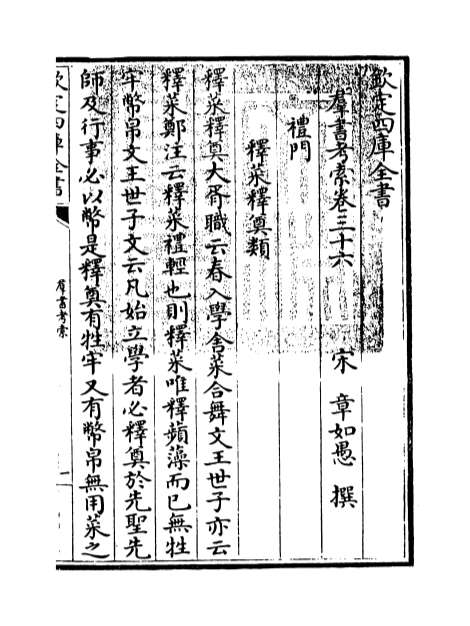 欽定四庫全書
羣書考索卷三十六
宋 章如愚 撰
禮門
釋菜釋奠類
釋菜釋奠大胥職云春入學舍菜合舞文王世子亦云
釋菜鄭注云釋菜禮輕也則釋菜唯釋蘋藻而已無牲
牢幣帛文王世子文云凡始立學者必釋奠於先聖先
師及行事必以幣是釋奠有牲牢又有幣帛無用菜之
欽定四庫全書
羣書考索
一